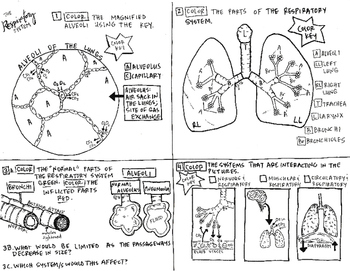 THE
Respiratory
SYSTEM
1 COLOR THE MAGNIFIED
ALVEOLI USING THE KEY.
ALVEOLI OF THE LUNGS
COLOR
KEY
A ALVEOLUS
C CAPILLARY
ALVEOLUS:
AIR SACK IN
THE LUNGS,
SITE OF GAS
EXCHANGE
A
A
A
A
A
2 COLOR THE PARTS OF THE RESPIRATORY
SYSTEM.
COLOR
KEY
A ALVEOLI
LL LEFT
LUNG
RL RIGHT
LUNG
T TRACHEA
L LARYNX
B BRONCHI
Br BRONCHIOLES
RL
LL
3A COLOR THE "NORMAL" PARTS OF
THE RESPIRATORY SYSTEM
GREEN. COLOR THE
INFLICTED PARTS
RED.
BRONCHI
ALVEOLI
NORMAL
ALVEOLUS
PNEUMONIA
FLUID
3B. WHAT WOULD BE LIMITED AS THE PASSAGEWAYS
DECREASE IN SIZE?
3C. WHICH SYSTEM/S WOULD THIS AFFECT?
4 COLOR THE SYSTEMS THAT ARE INTERACTING IN THE
PICTURES.
NERVOUS &
RESPIRATORY
MUSCULAR &
RESPIRATORY
CIRCULATORY &
RESPIRATORY
DIAPHRAGM